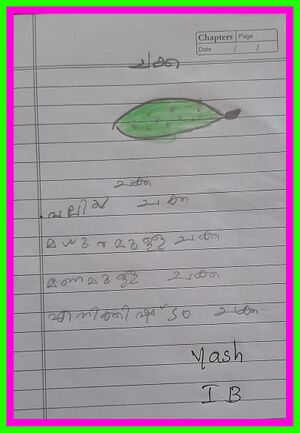 Chapters Page
Date / /
ചക്ക
ചക്ക
വലിയ ചക്ക
മധുരമുള്ള ചക്ക
മണമുള്ള ചക്ക
എനിക്കിഷ്ടം ചക്ക.
Yash
I B